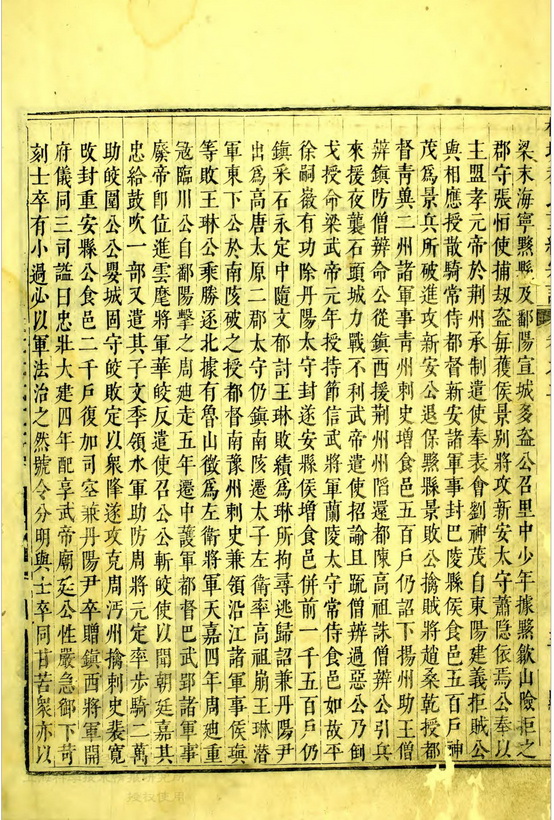 梁末海寧黟縣及鄱陽宣城多盜公召里中少年據黟歙山險拒之
郡守張恒使捕刼盜每獲侯景别將攻新安太守蕭隱依焉公奉以
主盟孝元帝於荆州承制遣使奉表會劉神茂自東陽建義拒賊公
與相應授散騎常侍都督新安諸軍事封巴陵縣侯食邑五百戶神
茂爲景兵所破進攻新安公退保黟縣景敗公擒賊將趙桑乾授都
督青兾二州諸軍事青州刺史增食邑五百戶仍詔下揚州助王僧
辨鎮防僧辨命公從鎮西援荆州州陷還都陳高祖誅僧辨公引兵
來援夜襲石頭城力戰不利武帝遣使招諭且䟽僧辨過惡公乃倒
戈授命梁武帝元年授持節信武將軍蘭陵太守常侍食邑如故平
徐嗣徽有功除丹陽太守封遂安縣侯增食邑併前一千五百戶仍
鎮采石永定中隨文郁討王琳敗績爲琳所拘尋逃歸詔兼丹陽尹
出爲高唐太原二郡太守仍鎮南陵遷太子左衛率高祖崩王琳潛
軍東下公於南陵破之授都督南豫州刺史兼領沿江諸軍事侯瑱
等敗王琳公乘勝逐北據有魯山徵爲左衛將軍天嘉四年周迪重
冦臨川公自鄱陽擊之周廸走五年遷中護軍都督巴武郢諸軍事
廢帝即位進雲麾將軍華皎反遣使召公公斬皎使以聞朝廷嘉其
忠給鼓吹一部又遣其子文季領水軍助防周將元定率步騎二萬
助皎圍公公嬰城固守皎敗定以衆降遂攻克周沔州擒刺史裴寛
改封重安縣公食邑二千戶復加司空兼丹陽尹卒贈鎮西將軍開
府儀同三司謚曰忠壯大建四年配享武帝廟廷公性嚴急御下苛
刻士卒有小過必以軍法治之然號令分明與士卒同甘苦衆亦以
授权使用